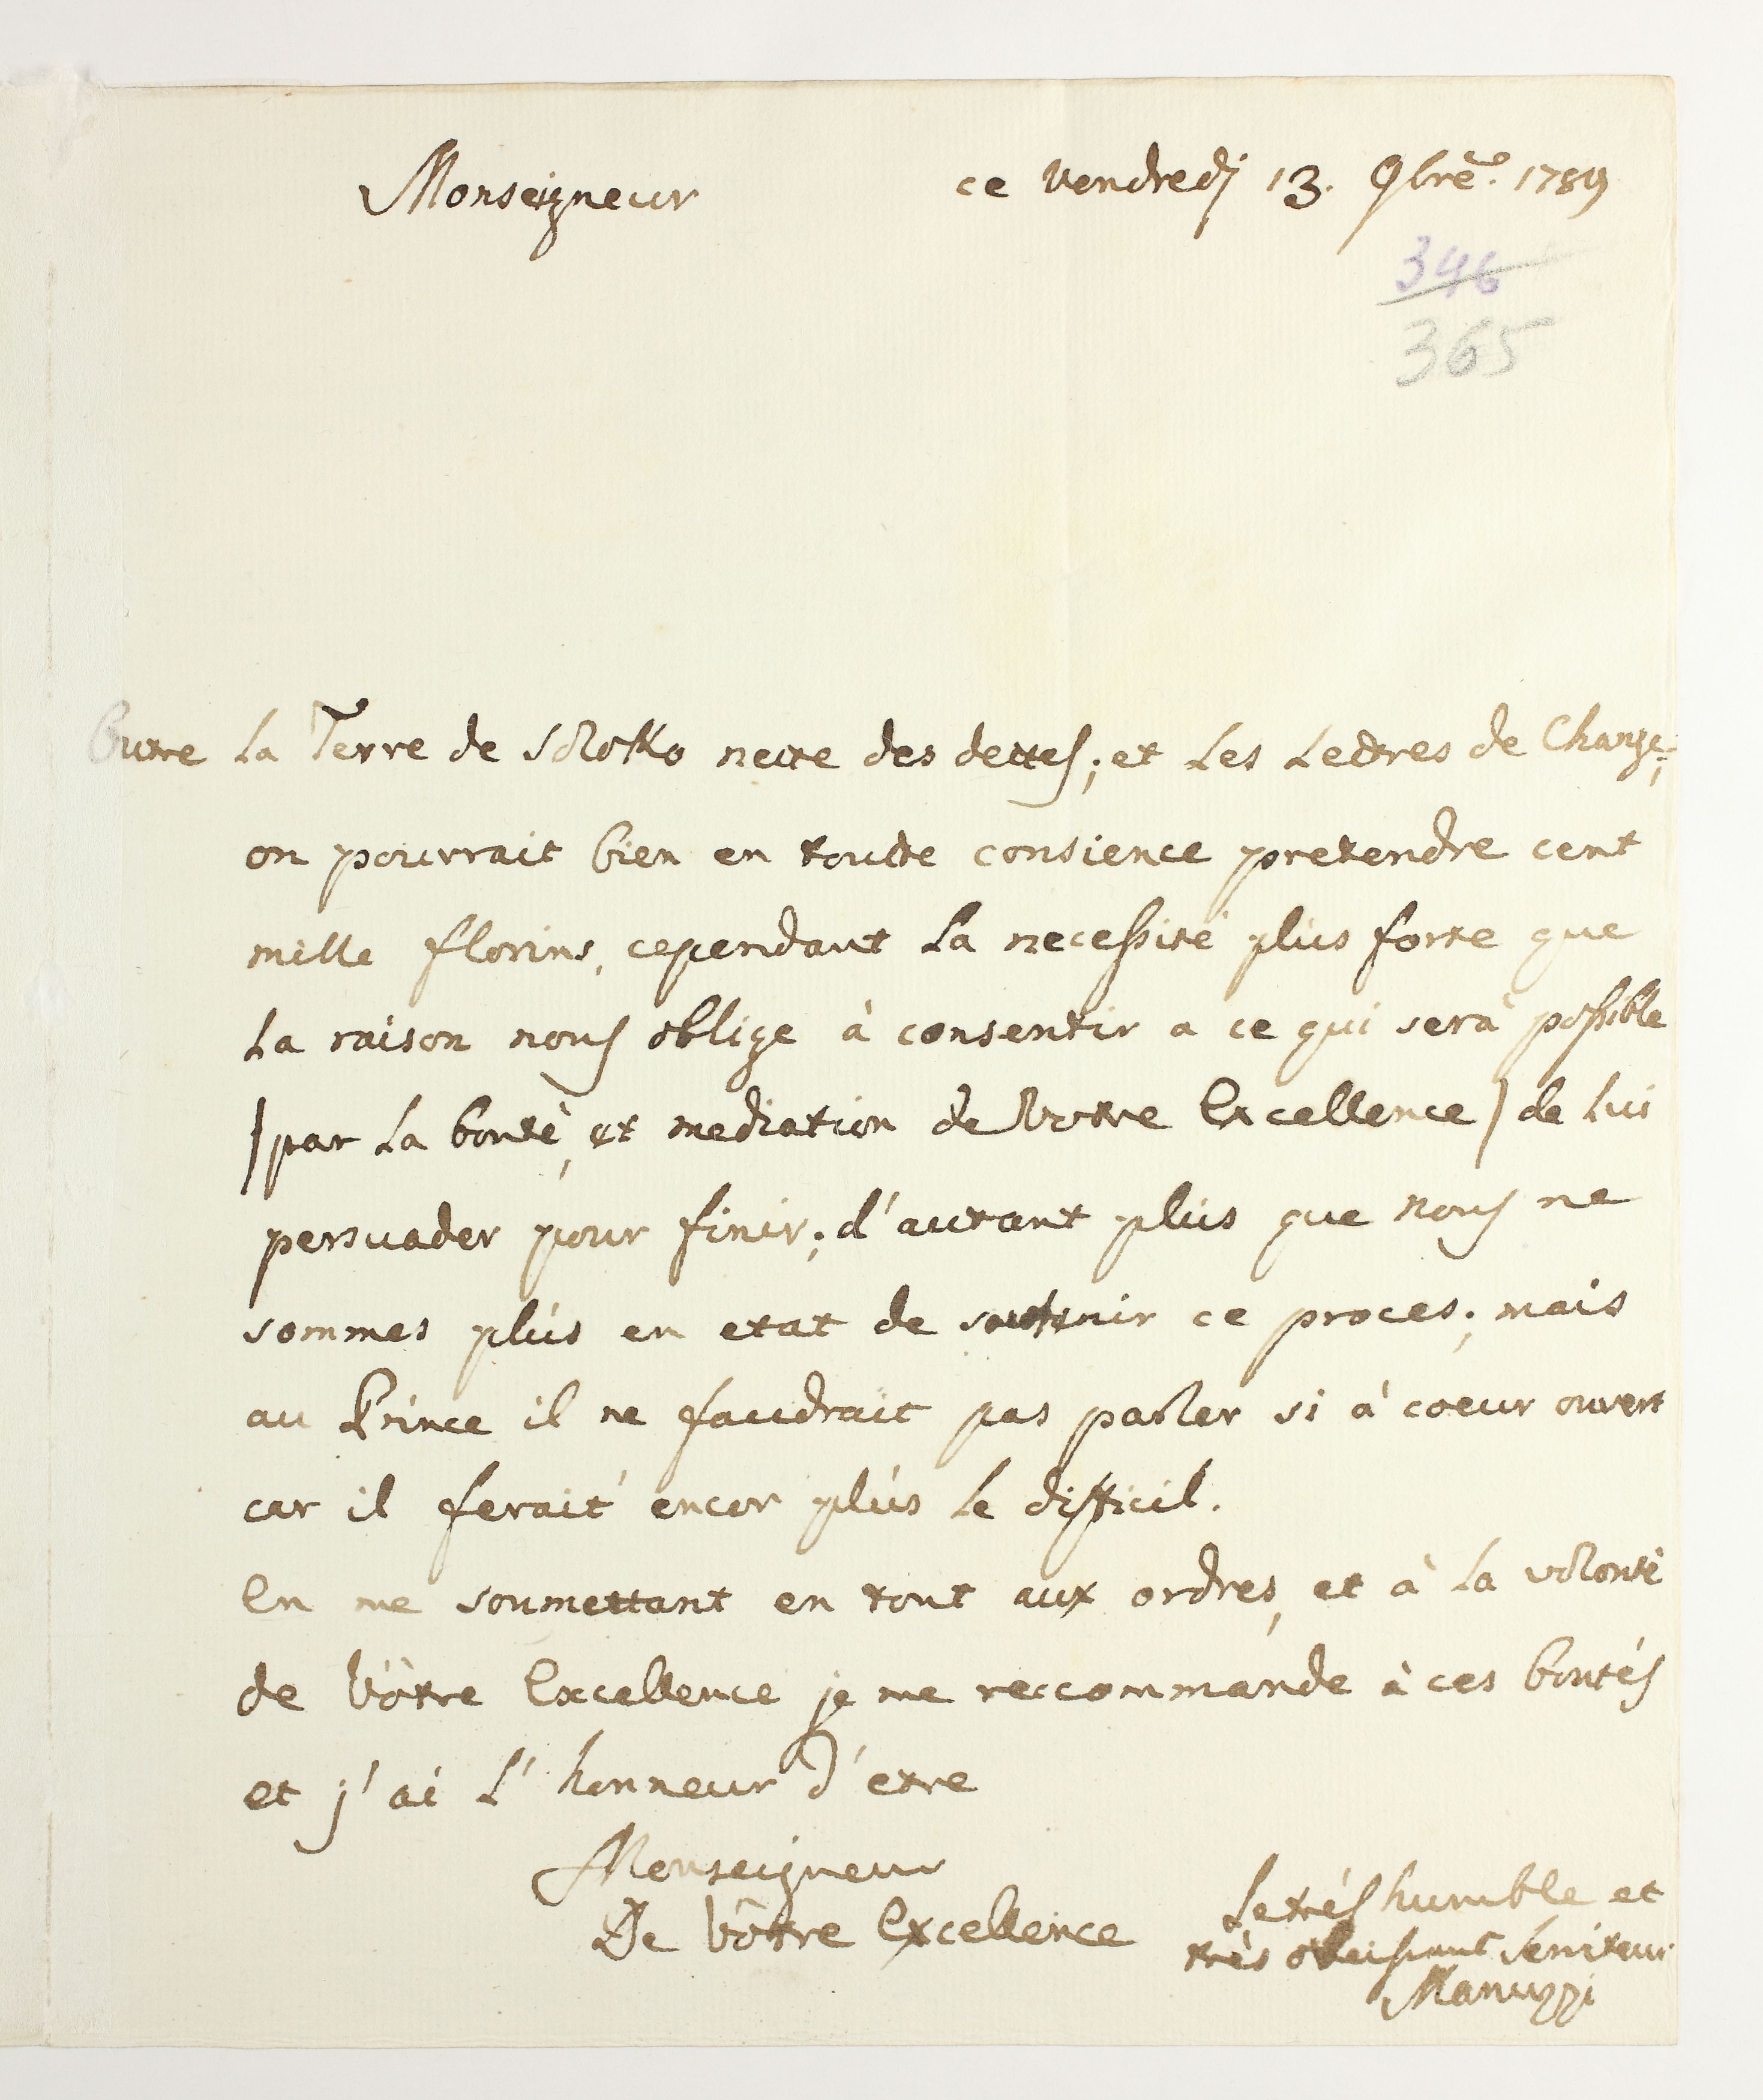 Monseigneur
ce vendredj 13. 9bre. 1789
346
365
Outre La Terre de Solokko nette des dettes; et Les Lettres de Change;
on pourrait bien en toutte consience pretendre cent
mille florins, cependant La necessité plus forte que
La raison nous oblige à consentir a ce qui sera possible
(par La bonté, et mediation de Votre Excellence) de Lui
persuader pour finir; d'autant plus que nous ne
sommes plus en etat de soutenir ce proces; mais
au Prince il ne faudrait pas parler si à coeur ouvert
car il ferait encor plus Le difficil.
En me soumettant en tout aux ordres, et à La volonté
de Vôtre Excellence je me reccommande à ces bontés
et j'ai L'honneur d'etre
Monseigneur
De Vôtre Excellence
Le trés humble et
très obeissant Serviteur
Manuzzi